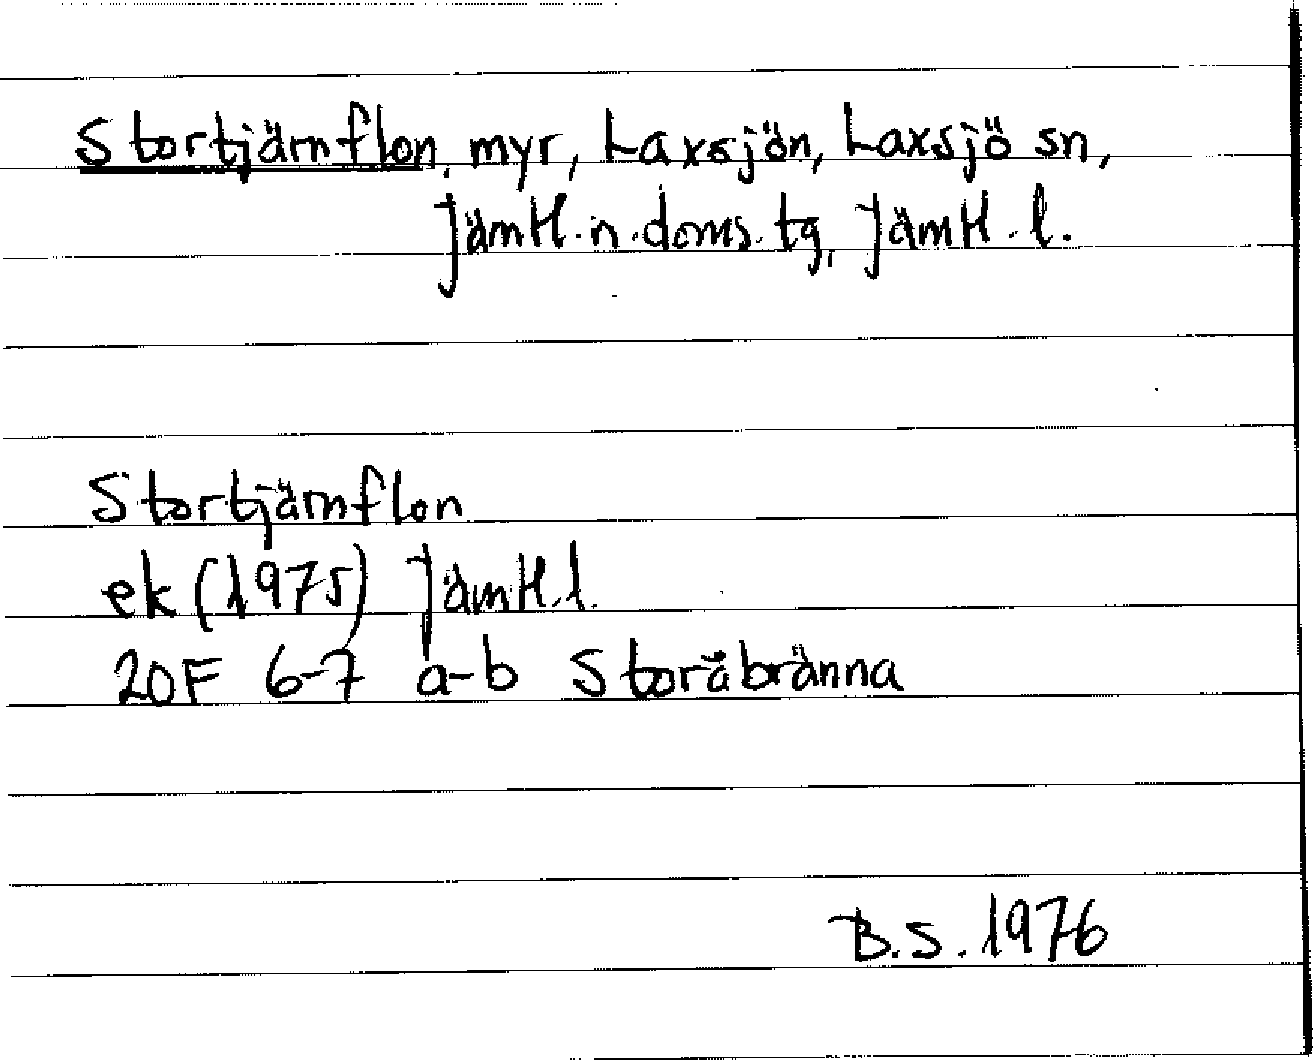 Stortjärnflon, myr, Laxsjön, Laxsjö sn,
Jämtl. n. doms. tg, Jämtl. l.
Stortjärnflon
ek (1975) Jämtl. l.
20F 6-7 a-b Storåbränna
B.S. 1976